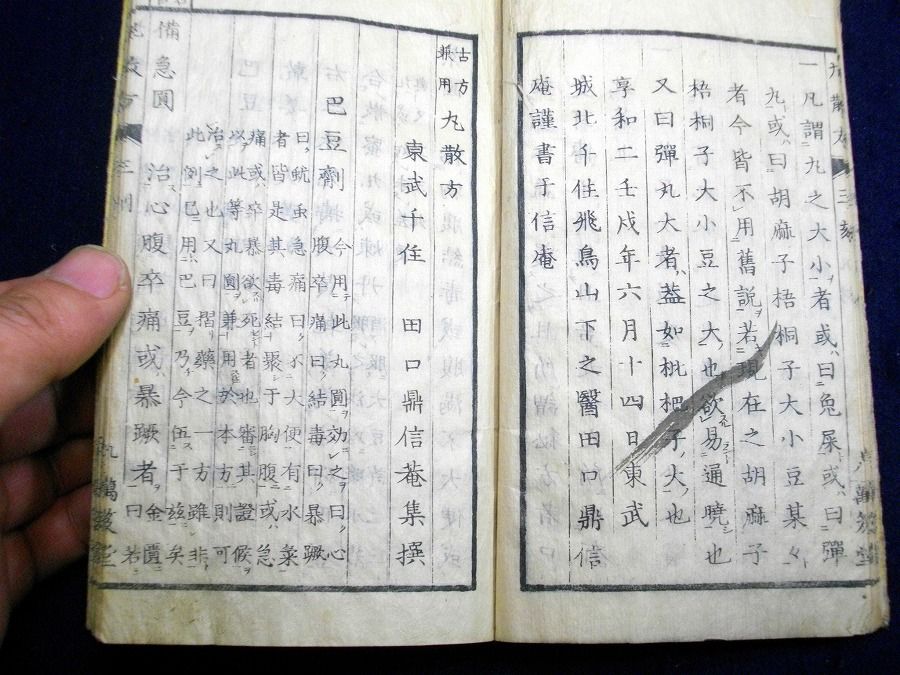 一凡謂丸之大小者或曰兔屎或曰彈
丸或曰胡麻子梧桐子大小豆某々
者今皆不用舊説若現在之胡麻子
梧桐子大小豆之大也欲易通曉也
又曰彈丸大者蓋如枇杷子大也
享和二壬戌年六月十四日東武
城北千住飛鳥山下之醫田口鼎信
庵謹書于信庵
古方兼用丸散方
東武千住 田口鼎信菴集撰
巴豆劑 今用此丸圓効之曰心
腹卒痛曰結毒曰暴蹶
曰蚘虫急痛曰不大便有水氣
者皆是其毒結聚于胸腹或急
痛或卒暴欲死者也審其證候
以此等丸圓兼用於本方則可
治之也又曰摺藥之一方雖非
此例巴用巴豆乃今伍于玆矣
備急圓 治心腹卒痛或暴蹶者金匱曰若